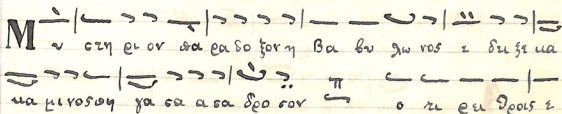 Μυ στη ρι ον πα ρα δο ξον η Βα βυ λω νος ε δει ξε κα
κα μι νος πη γα σα α σα δρο σον ο τι ρει θροις ε